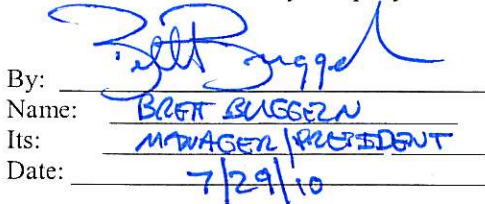 By: Brett Buggel
Name: BRETT BUGGELN
Its: MANAGER/PRESIDENT
Date: 7/29/10